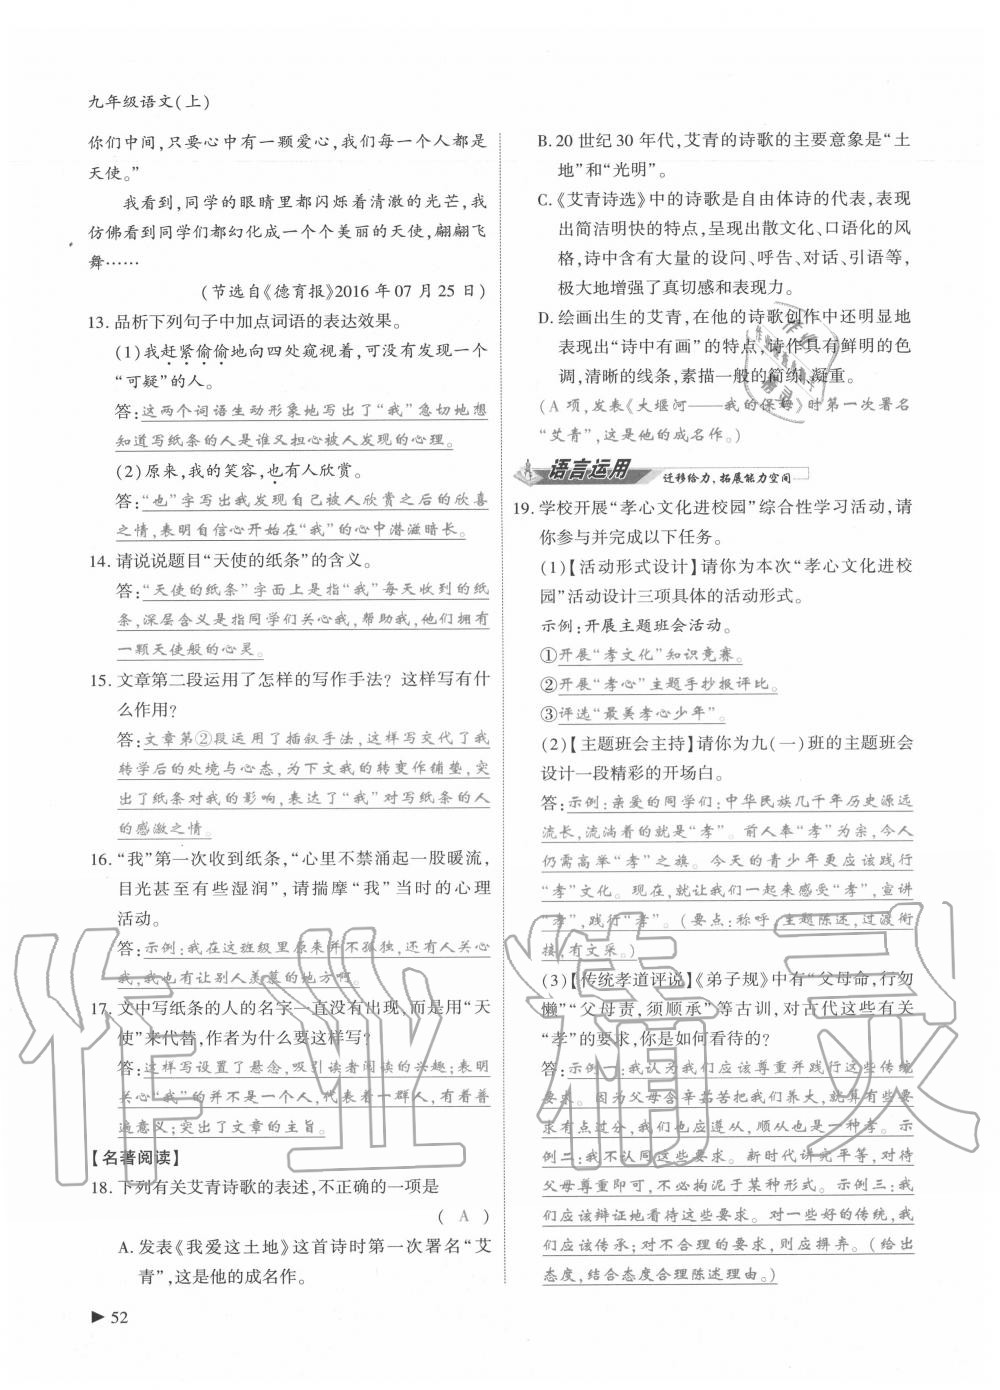 九年级语文(上)
你们中间,只要心中有一颗爱心,我们每一个人都是
天使。”
我看到,同学的眼睛里都闪烁着清澈的光芒,我
仿佛看到同学们都幻化成一个个美丽的天使,翩翩飞
舞……
(节选自《德育报》2016年07月25日)
13. 品析下列句子中加点词语的表达效果。
(1)我赶紧偷偷地向四处窥视着,可没有发现一个
“可疑”的人。
答:这两个词语生动形象地写出了“我”急切地想
知道写纸条的人是谁又担心被人发现的心理。
(2)原来,我的笑容,也有人欣赏。
答:“也”字写出我发现自己被人欣赏之后的欣喜
之情,表明自信心开始在“我”的心中潜滋暗长。
14. 请说说题目“天使的纸条”的含义。
答:“天使的纸条”字面上是指“我”每天收到的纸
条,深层含义是指同学们关心我,帮助我,他们拥有
一颗天使般的心灵。
15. 文章第二段运用了怎样的写作手法?这样写有什
么作用?
答:文章第②段运用了插叙手法,这样写交代了我
转学后的处境与心态,为下文我的转变作铺垫,突
出了纸条对我的影响,表达了“我”对写纸条的人
的感激之情。
16. “我”第一次收到纸条,“心里不禁涌起一股暖流,
目光甚至有些湿润”,请揣摩“我”当时的心理
活动。
答:示例:我在这班级里原来并不孤独,还有人关心
我,我也有让别人羡慕的地方啊。
17. 文中写纸条的人的名字一直没有出现,而是用“天
使”来代替,作者为什么要这样写?
答:这样写设置了悬念,吸引读者阅读的兴趣;表明
关心“我”的并不是一个人,代表着一群人,有着普
遍意义;突出了文章的主旨。
【名著阅读】
18. 下列有关艾青诗歌的表述,不正确的一项是
( A )
A. 发表《我爱这土地》这首诗时第一次署名“艾
青”,这是他的成名作。
▶ 52
B. 20世纪30年代,艾青的诗歌的主要意象是“土
地”和“光明”。
C.《艾青诗选》中的诗歌是自由体诗的代表,表现
出简洁明快的特点,呈现出散文化、口语化的风
格,诗中含有大量的设问、呼告、对话、引语等,
极大地增强了真切感和表现力。
D. 绘画出生的艾青,在他的诗歌创作中还明显地
表现出“诗中有画”的特点,诗作具有鲜明的色
调,清晰的线条,素描一般的简练、凝重。
(A项,发表《大堰河——我的保姆》时第一次署名
“艾青”,这是他的成名作。)
语言运用 迁移给力,拓展能力空间
19. 学校开展“孝心文化进校园”综合性学习活动,请
你参与并完成以下任务。
(1)【活动形式设计】请你为本次“孝心文化进校
园”活动设计三项具体的活动形式。
示例:开展主题班会活动。
①开展“孝文化”知识竞赛。
②开展“孝心”主题手抄报评比。
③评选“最美孝心少年”。
(2)【主题班会主持】请你为九(一)班的主题班会
设计一段精彩的开场白。
答:示例:亲爱的同学们:中华民族几千年历史源远
流长,流淌着的就是“孝”。前人奉“孝”为宗,今人
仍需高举“孝”之旗。今天的青少年更应该践行
“孝”文化。现在,就让我们一起来感受“孝”,宣讲
“孝”,践行“孝”。(要点:称呼,主题陈述,过渡衔
接,有文采。)
(3)【传统孝道评说】《弟子规》中有“父母命,行勿
懒”“父母责,须顺承”等古训,对古代这些有关
“孝”的要求,你是如何看待的?
答:示例一:我认为我们应该尊重并践行这些传统
要求。因为父母含辛茹苦把我们养大,就算有些要
求有点过分,我们也应遵从,顺从也是一种孝。示
例二:我不认同这些要求。新时代讲究平等,对待
父母尊重即可,不必拘泥于某种形式。示例三:我
们应该辩证地看待这些要求。对一些好的传统,我
们应该传承;对不合理的要求,则应摒弃。(给出
态度,结合态度合理陈述理由。)
作业精灵